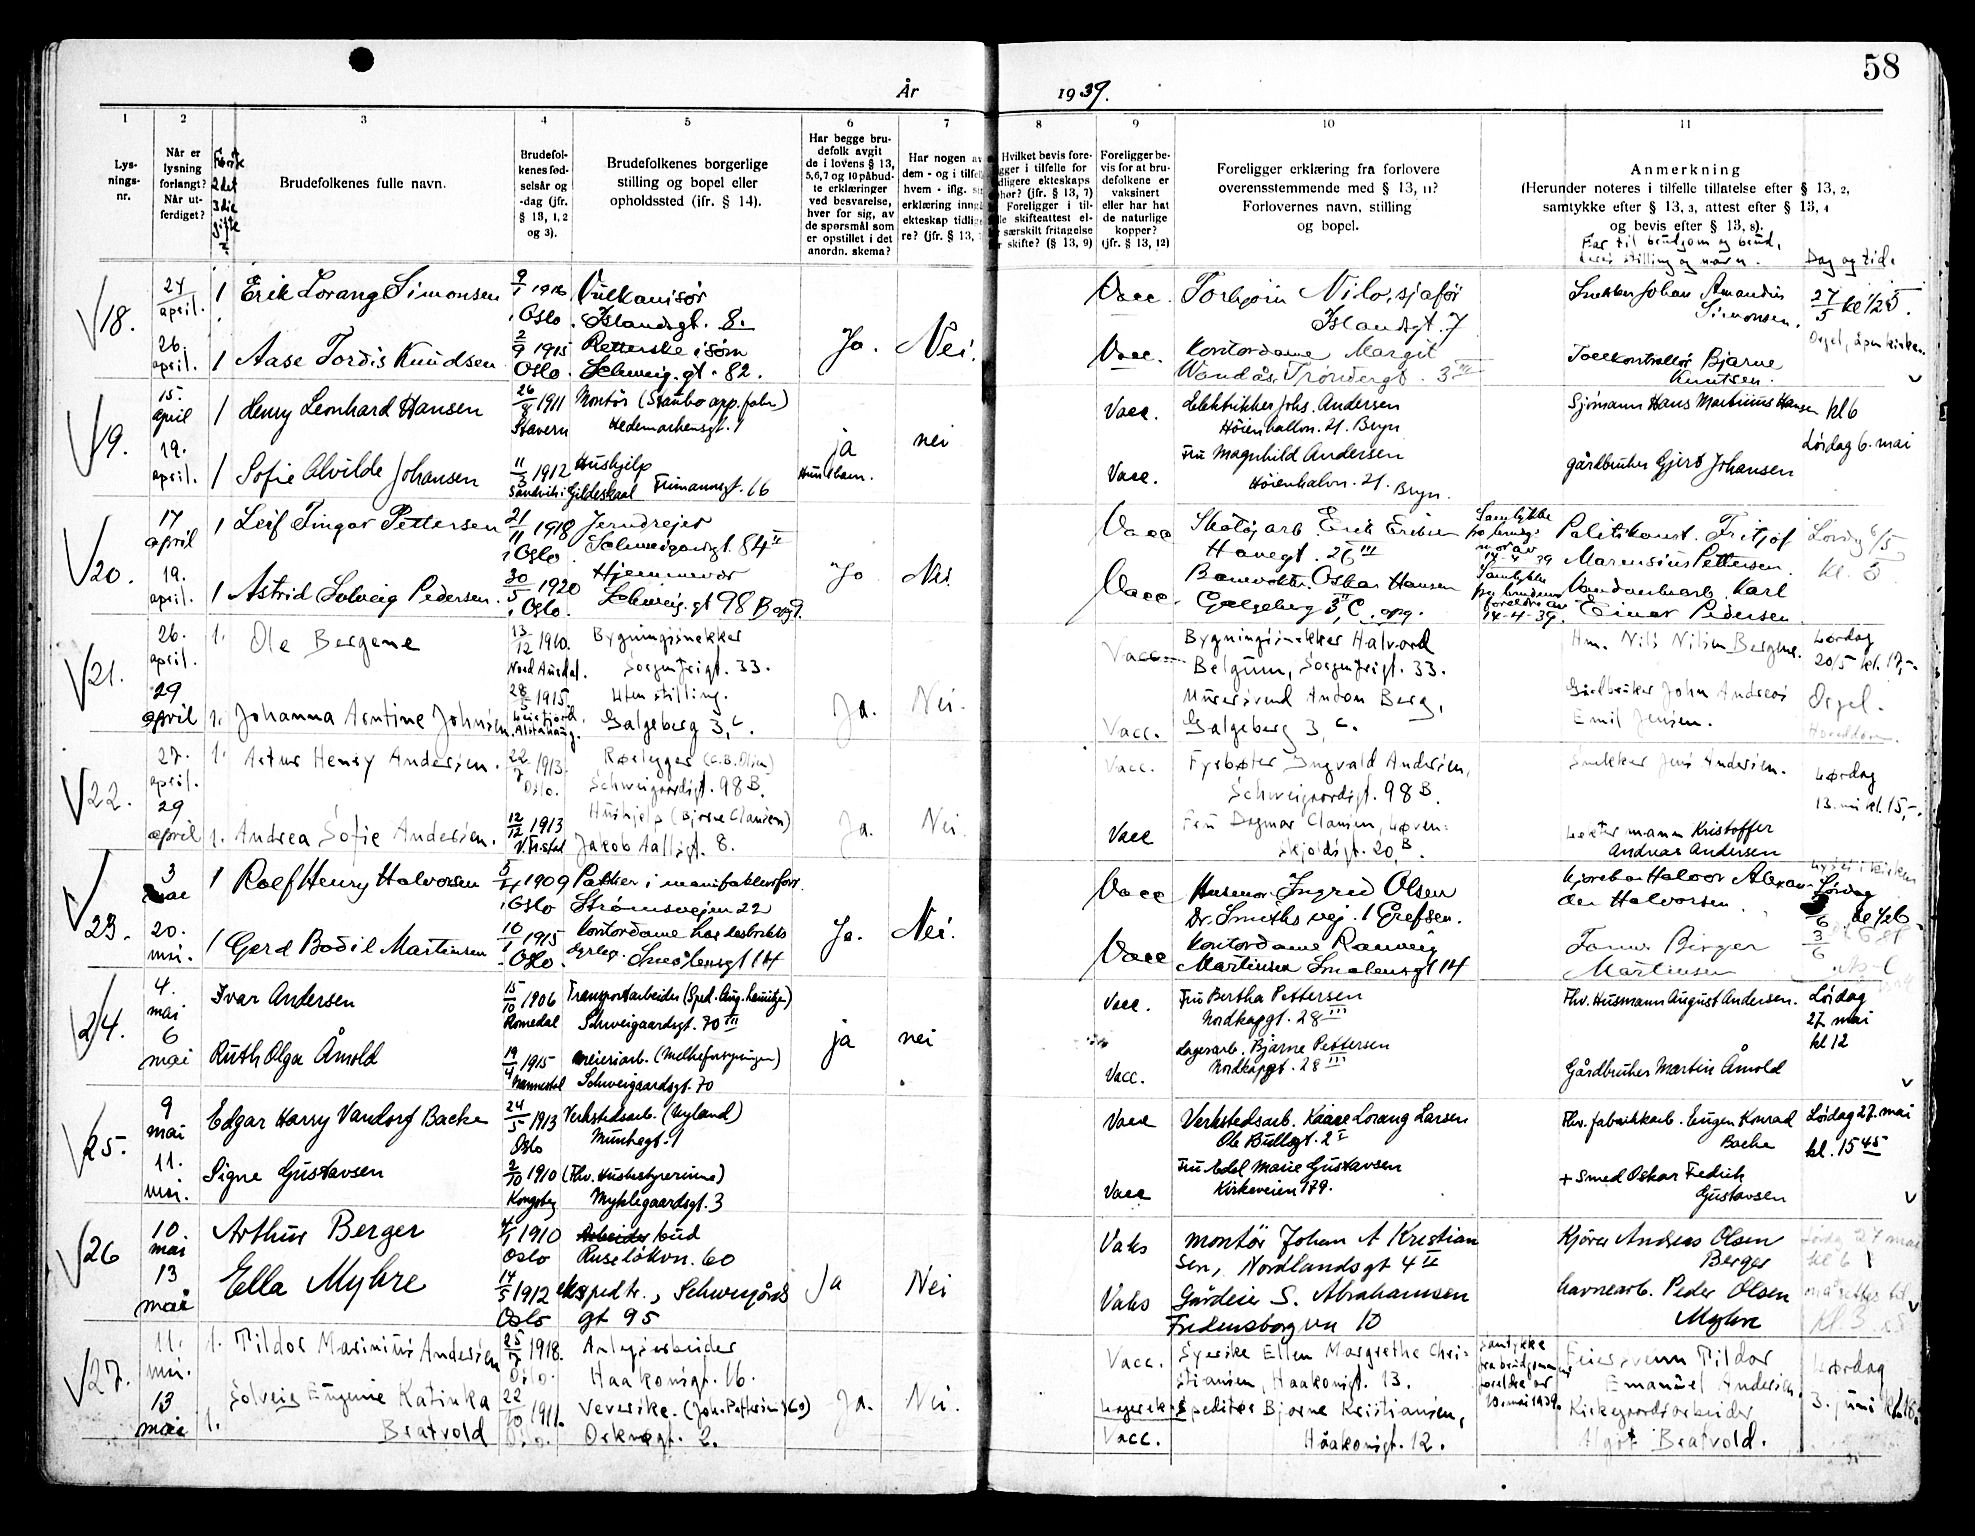 58
År 1939.
1 2 3 4 5 6 7 8 9 10 11
Lys-
nings-
nr.
Når er
lysning
forlangt?
Når ut-
ferdiget?
Brudefolkenes fulle navn.
Brudefol-
kenes fød-
selsår og
-dag (jfr.
§ 13, 1, 2
og 3).
Brudefolkenes borgerlige
stilling og bopel eller
opholdssted (ifr. § 14).
Har begge bru-
defolk avgit
de i lovens § 13,
5,6,7 og 10 påbud-
te erklæringer
ved besvarelse,
hver for sig, av
de spørsmål som
er opstillet i det
anordn. skema?
Har nogen av
dem - og i tilfelle
hvem - iflg.
erklæring inngå
ekteskap tidlige-
re? (jfr. § 13,
Hvilket bevis fore-
ligger i tilfelle for
tidligere ekteskaps
ophør? (jfr. § 13, 7)
Foreligger i til-
felle skifteattest el-
særskilt fritagelse
skifte? (§ 13, 9)
Foreligger be-
vis for at bru-
defolkene er
vaksinert
eller har hat
de naturlige
kopper?
(jfr. § 13, 12)
Foreligger erklæring fra forlovere
overensstemmende med § 13, 11?
Forlovernes navn, stilling
og bopel.
Anmerkning
(Herunder noteres i tilfelle tillatelse efter § 13, 2,
samtykke efter § 13, 3, attest efter § 13, 4
og bevis efter § 13, 8).
Far til brudgom og brud,
deres stilling og navn.
Dag og tid.
18. 24 april. 1 Erik Lorang Simonsen 9/1 1916 Vulkanisør Vacc. Torbjørn Nilo, sjafør Snekker Johan Amandus 27/5 kl 1/2 5
i Oslo. Islandsgt. 8. Islandsgt. 7 Simonsen.
26. april. 1 Aase Tordis Knudsen 2/9 1915 Ja. Nei. Vacc. Kontordame Margit Bjarne
Oslo. Schweig. gt. 82. Trondergt. 3 III Knutsen.
19. 15. april 1 Henry Leonhard Hansen 26/8 1911 Montør Vacc. Elektrikker Johs. Andersen Sjømann Hans Martinius Hansen kl 6
Stavern Hedemarkensgt. 1 Høienhallvn. 21. Bryn
19. april. 1 Sofie Alvilde Johansen 11/3 1912 Hushjelp ja nei Vacc. Fru Magnhild Andersen gårdbruker Gjert Johansen Lørdag 6. mai
Gildeskaal Høienhalvn. 21. Bryn.
20. 17 april 1 Leif Ingar Pettersen 21/11 1918 Jerndreier Vacc Skotøjarb. Erik Samtykke Politikonst. Fritjof Lørdag 6/5
i Oslo. Schweigaardsgt. 84 II Havegt. 26 III 14-4-39 Marensius Pettersen. kl. 5
19. april. 1 Astrid Solveig Pedersen. 30/5 1920 Ja Nei Vacc. Oskar Hansen Samtykke Karl
i Oslo. Schweig. gt 98 B Galgeberg 3 C, 14-4-39. Einar Pedersen.
21. 26. april. 1. Ole Bergene 13/12 1910. Bygningssnekker Vacc. Bygningssnekker Halvord Hm. Nils Nilsen Bergene. Lørdag
Nord Aurdal. Sorgenfrigt. 33. Belgum, Sorgenfrigt. 33. 20/5 kl. 17,-.
29 april 1. Johanna Arntine Johnsen. 28/5 1915. Uten stilling. Ja. Nei. Murersvend Anton Berg, Gårdbruker John Andreas Orgel.
Alstahaug. Galgeberg 3, c. Vacc. Galgeberg 3, c. Emil Jensen.
22. 27. april. 1. Artur Henry Andersen. 22/7 1913. Rørlegger Vacc. Fyrbøter Ingvald Andersen, Snekker Jens Andersen. Lørdag
Oslo. Schweigaardsgt. 98 B. Schweigaardsgt. 98 B. 13. mai kl. 15,-.
29 april 1. Andrea Sofie Andersen. 12/12 1913 Hushjelp (Bjarne Clausen) Ja. Nei Vacc Fru Dagmar Clausen, Løven- Kristoffer
Jakob Aallsgt. 8. skjoldsgt. 20, B. Andreas Andersen
23. 3 mai 1 Rolf Henry Halvorsen 1909 Pakker i manufakturforr. Vacc Husmor Ingrid Olsen Halvor Alexan- Lørdag
i Oslo Strømsveien 22 Dr. Smiths vej. 1 Grefsen. der Halvorsen.
20. mai. 1 Gerd Bodil Martinsen 10/1 1915 Kontordame Ja. Nei. Vacc Kontordame Ranveig Birger 3/6
Oslo. Smålensgt 14 Martinsen Smalensgt 14 Martinsen
24. 4. mai Ivar Andersen 15/10 1906 Transportarbeider Vacc. Fru Bertha Pettersen Fhv. Husmann August Andersen. Lørdag
Romedal Schweigaardsgt. 70 III Nordkapgt. 28 III 27 mai
6 mai Ruth Olga Årnold 19/4 1915 meieriarb. (Melkeforsyningen) ja nei Vacc. Lagerarb. Bjarne Pettersen Gårdbruker Martin Årnold kl 12
Schweigaardsgt. 70 Nordkapgt. 28 III
25. 9 mai Edgar Harry Vandorf Backe 24/5 1913 Verkstedsarb. (Myland) Vacc Verkstedsarb. Kaare Lorang Larsen Fhv. fabrikkarb. Eugen Konrad Lørdag 27. mai
Oslo Munkegt. 1 Ole Bullsgt. 2 I Backe kl. 15 45
11. mai. Signe Gustavsen 2/10 1910 (Fhv. Husbestyrerinne) Vacc Fru Edel Marie Gustavsen + Smed Oskar Fredrik
Kongsberg Myklegaardsgt. 3 Kirkeveien 179. Gustavsen
26 10. mai Arthur Berger 4/1 1910 Arbeider bud Vaks montør Johan A Kristian Kjører Andreas Olsen Lørdag 27 mai
Oslo Ruseløkvn. 60 sen, Nordlandsgt 4 II Berger kl 6
13 mai Ella Myhre 14/5 1912 ekspedtr., Schweigårds Ja Nei Vaks Gårdeier S. Abrahamsen havnearb. Peder Olsen
Oslo gt 95 Fredensborg vn 10 Myhre Kl. 3
27. 11. mai. 1. Tildor Marinius Andersen 25/7 1918. Anlegsarbeider Vacc. Syerske Ellen Margrethe Chri- Samtykke Feiersvenn Tildor Lørdag
Oslo. Haakonsgt. 16. stiansen, Haakonsgt. 13. fra brudgommens foreldre av Emanuel Andersen 3. juni
13 mai 1. Solveig Eugenie Katinka 22/10 1911. Veverske. Ja. Nei. Speditør Bjarne Kristiansen, 10. mai 1939. Kirkegaardsarbeider
Bratvold Oslo. Orknøgt. 2. Vacc. Håakonsgt. 12. Algot Bratvold.